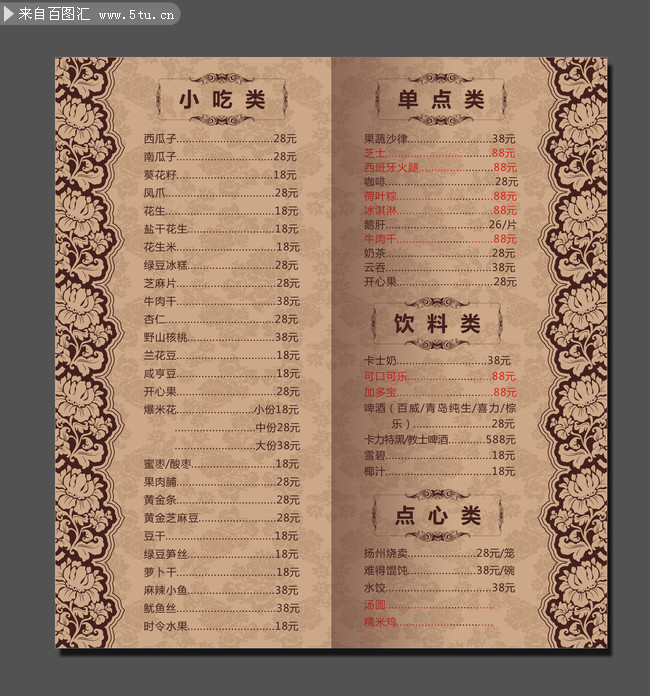 来自百图汇 www.5tu.cn
小吃类
西瓜子......................28元
南瓜子......................28元
葵花籽......................18元
凤爪......................28元
花生......................18元
盐干花生......................18元
花生米......................18元
绿豆冰糕......................28元
芝麻片......................28元
牛肉干......................38元
杏仁......................28元
野山核桃......................38元
兰花豆......................18元
咸亨豆......................18元
开心果......................28元
爆米花......................小份18元
......................中份28元
......................大份38元
蜜枣/酸枣......................18元
果肉脯......................28元
黄金条......................28元
黄金芝麻豆......................28元
豆干......................18元
绿豆笋丝......................18元
萝卜干......................18元
麻辣小鱼......................38元
鱿鱼丝......................38元
时令水果......................18元
单点类
果蔬沙律......................38元
芝士......................88元
西班牙火腿......................88元
咖啡......................28元
荷叶粽......................88元
冰淇淋......................88元
鹅肝......................26/片
牛肉干......................88元
奶茶......................28元
云吞......................38元
开心果......................28元
饮料类
卡士奶......................38元
可口可乐......................88元
加多宝......................88元
啤酒（百威/青岛纯生/喜力/棕
乐）......................28元
卡力特黑/教士啤酒............588元
雪碧......................18元
椰汁......................18元
点心类
扬州烧卖......................28元/笼
难得馄饨......................38元/碗
水饺......................38元
汤圆......................
糯米鸡......................